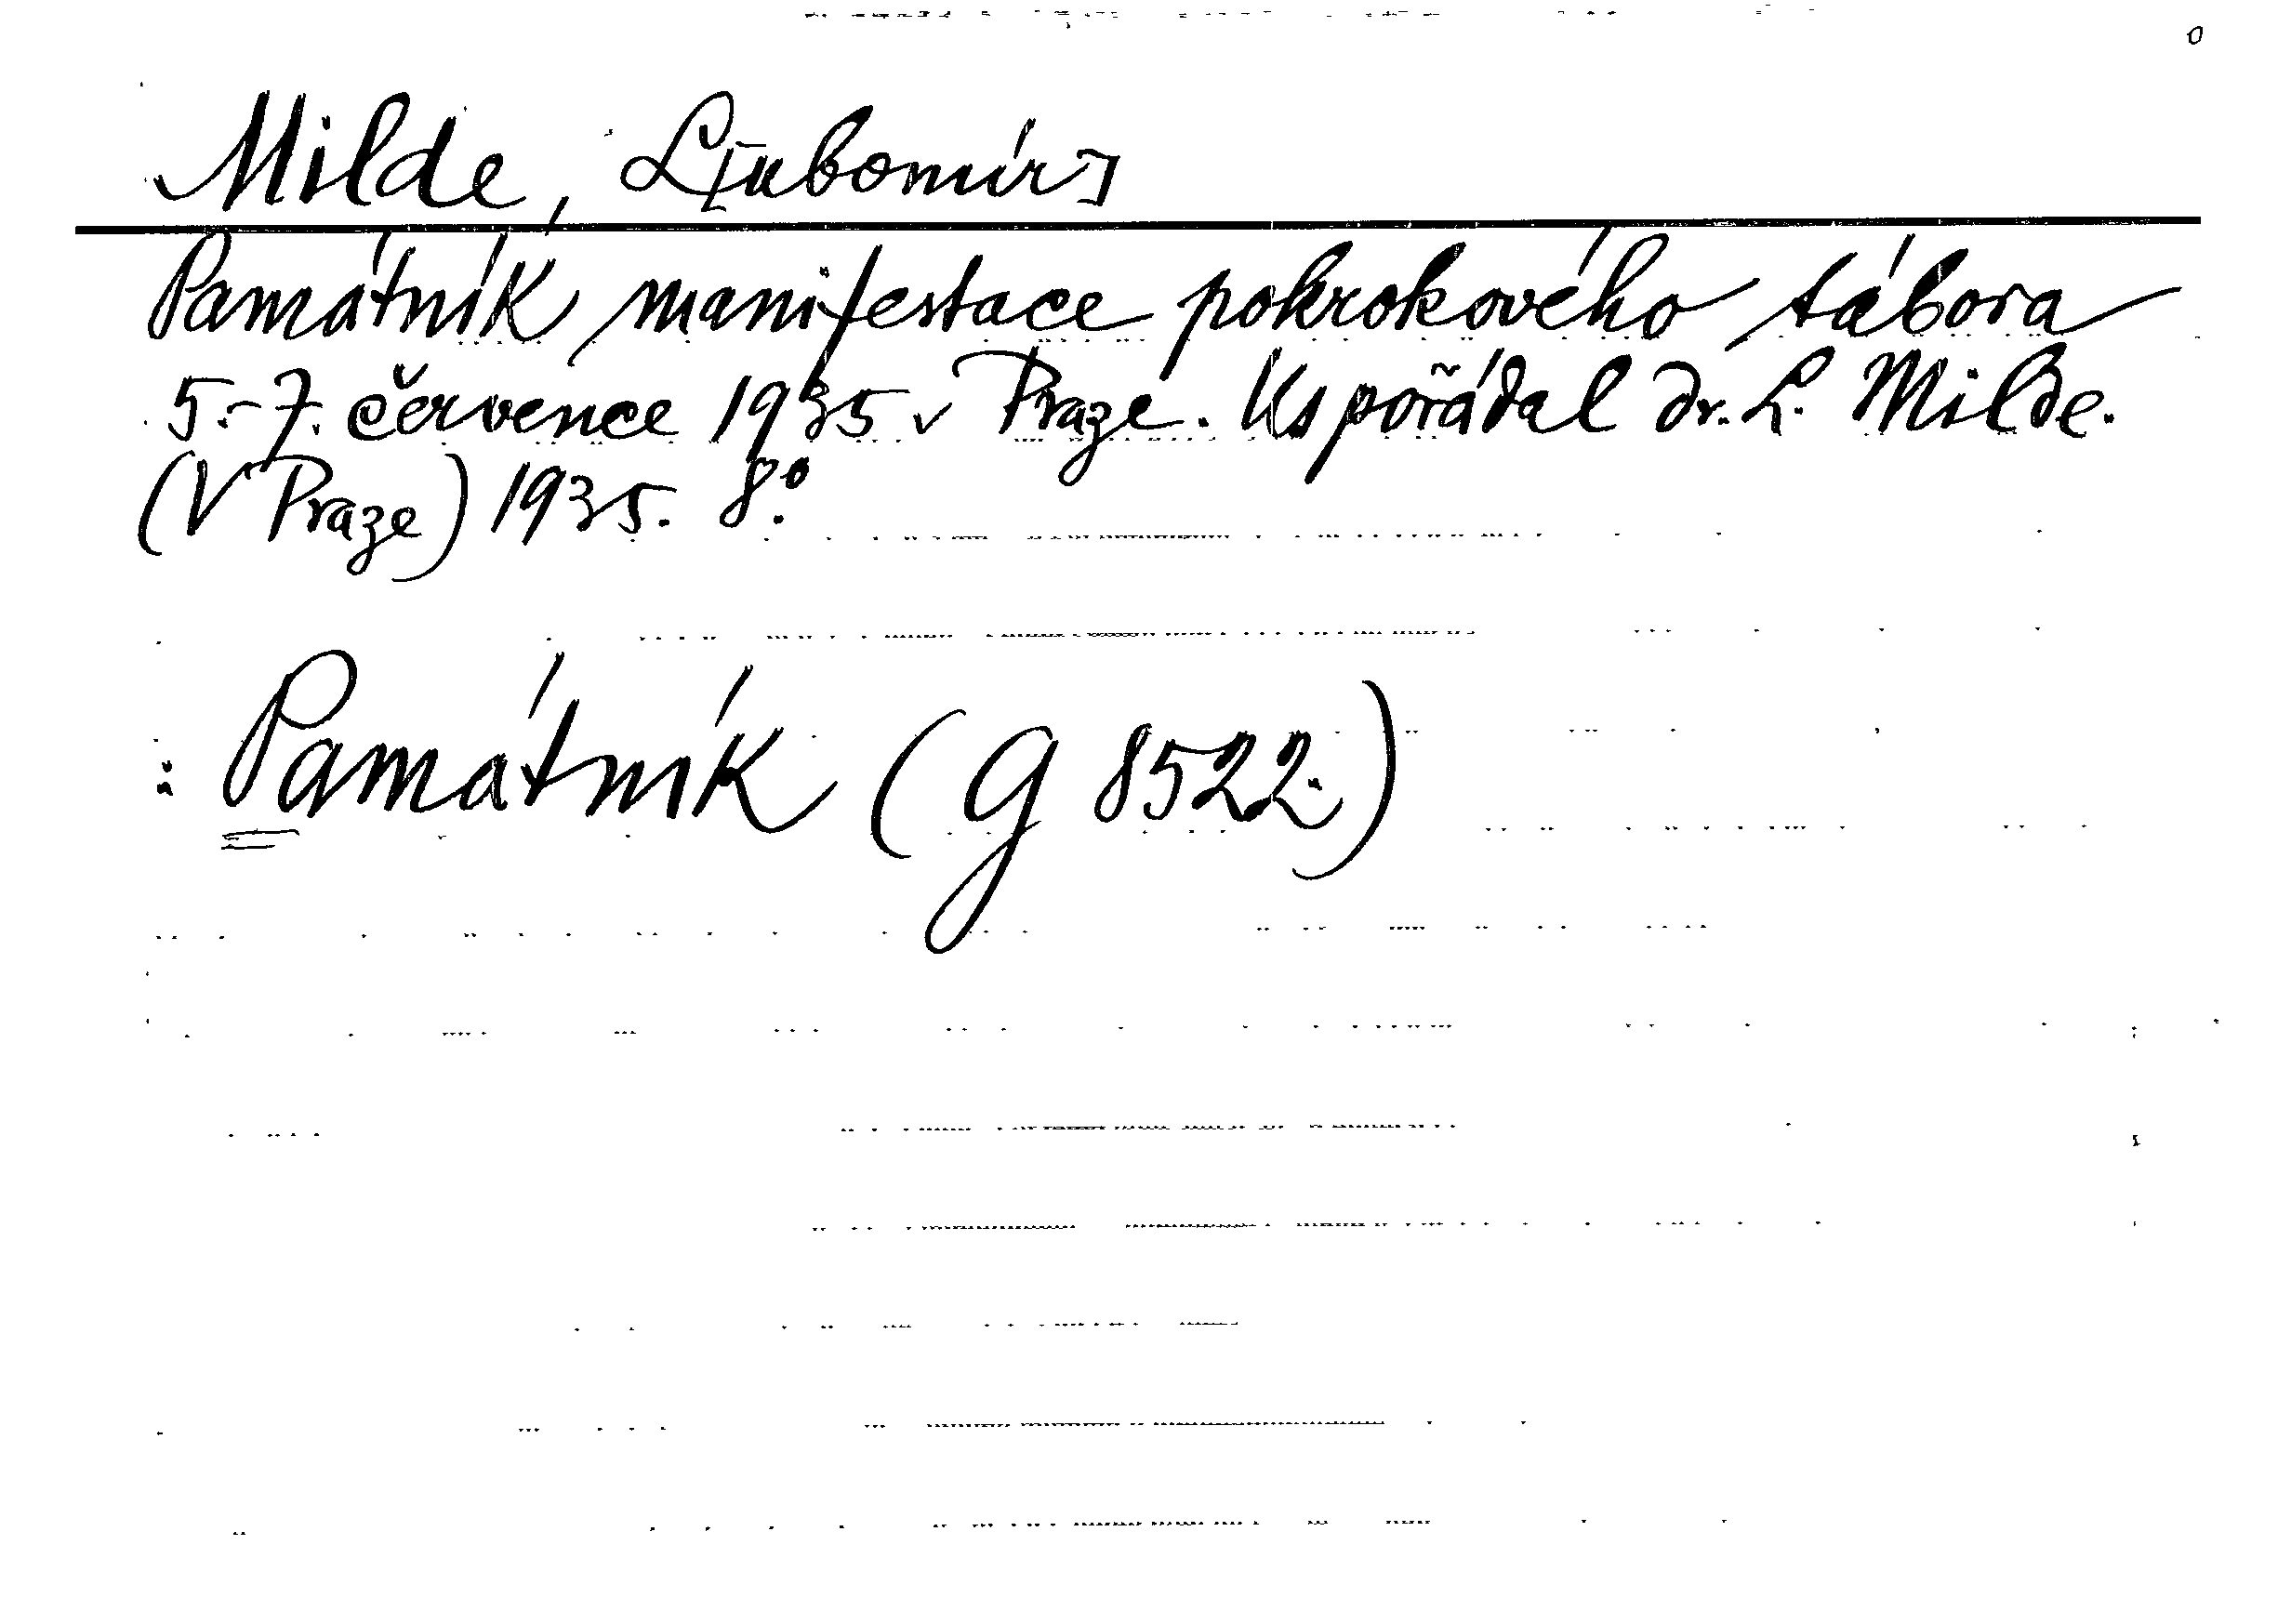 Milde, L[ubomír]
Památník manifestace pokrokového tábora
5.-7. července 1935 v Praze. Uspořádal dr. L. Milde.
(V Praze) 1935. 8°.
: Památník (G 8522.)